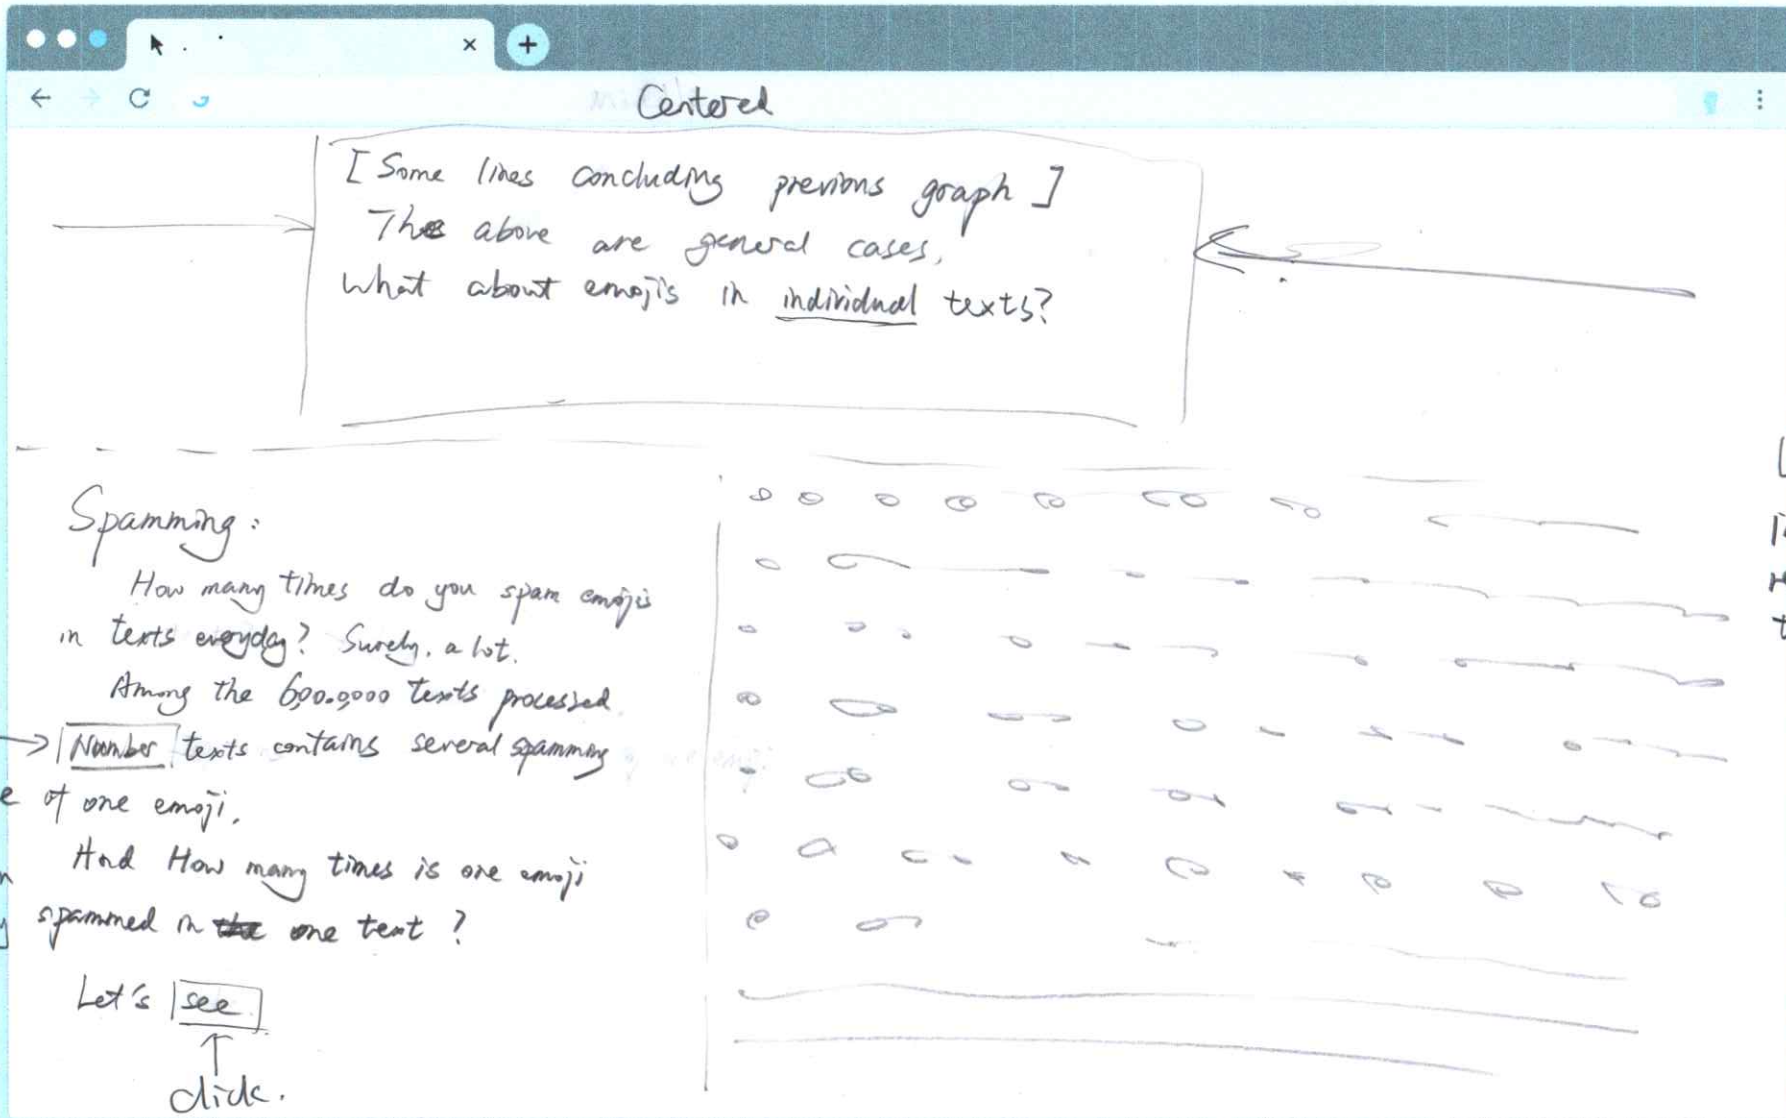 Centered
[Some lines concluding previous graph]
The above are general cases,
what about emojis in individual texts?
Spamming:
How many times do you spam emojis
in texts everyday? Surely, a lot.
Among the texts processed
Number texts contains several spamming
of one emoji.
And How many times is one emoji
spammed in one text?
Let's see.
click.